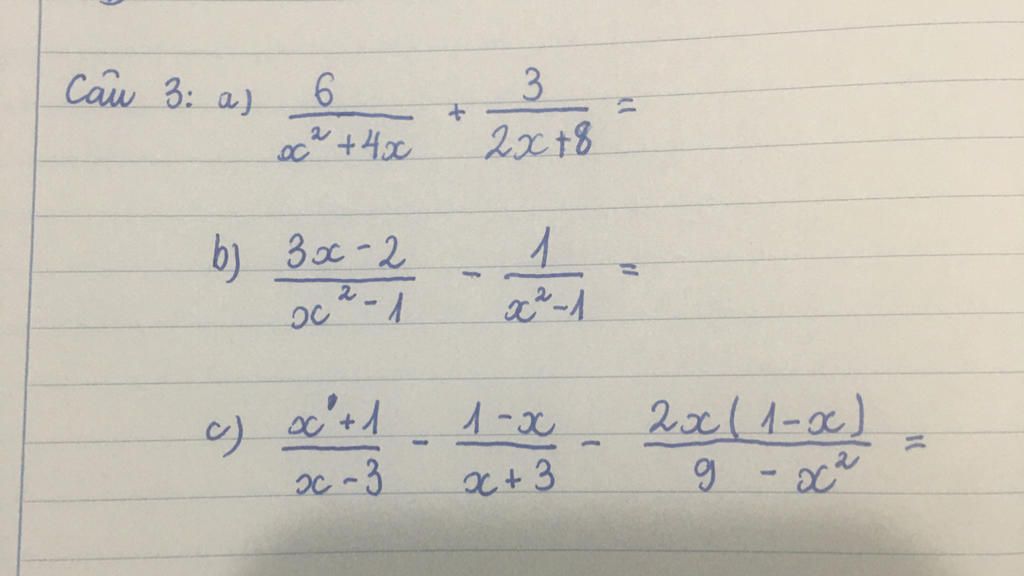 Câu 3: a) \frac{6}{x^2+4x} + \frac{3}{2x+8} =
b) \frac{3x-2}{x^2-1} - \frac{1}{x^2-1} =
c) \frac{x+1}{x-3} - \frac{1-x}{x+3} - \frac{2x(1-x)}{9-x^2} =